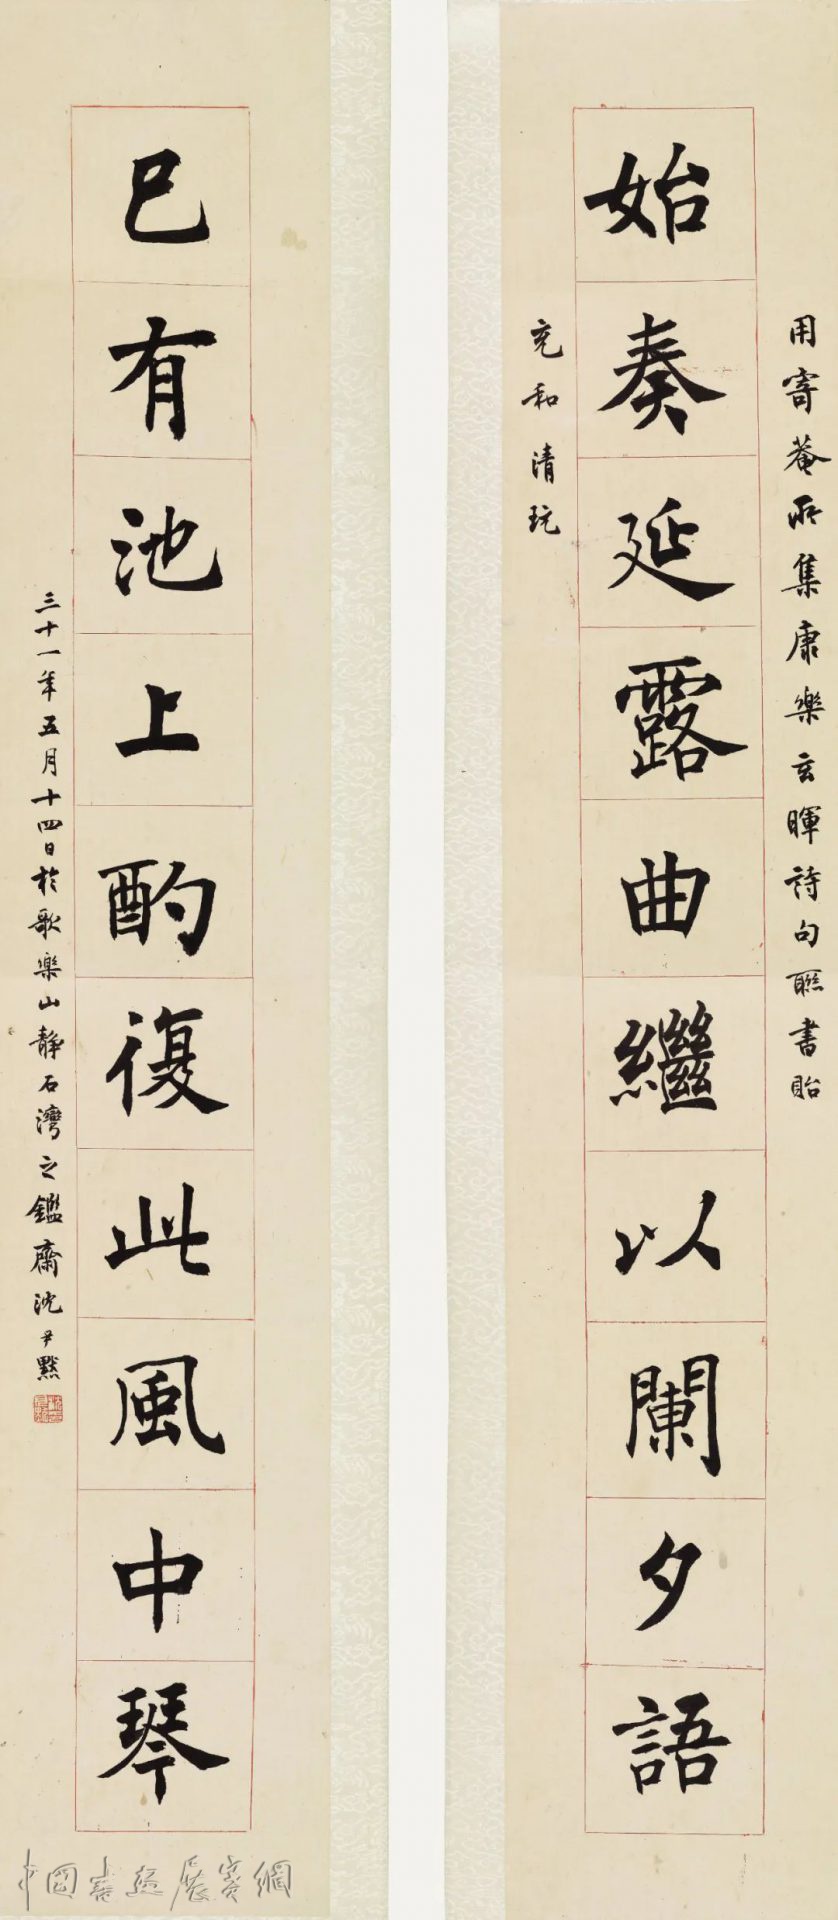 用寄菴所集康樂玄暉詩句聯書貽
始奏延露曲繼以闌夕語
充和清玩
已有池上酌復此風中琴
三十一年五月十四日於歌樂山靜石灣之鑑齋沈尹默
中國書畫展賽網